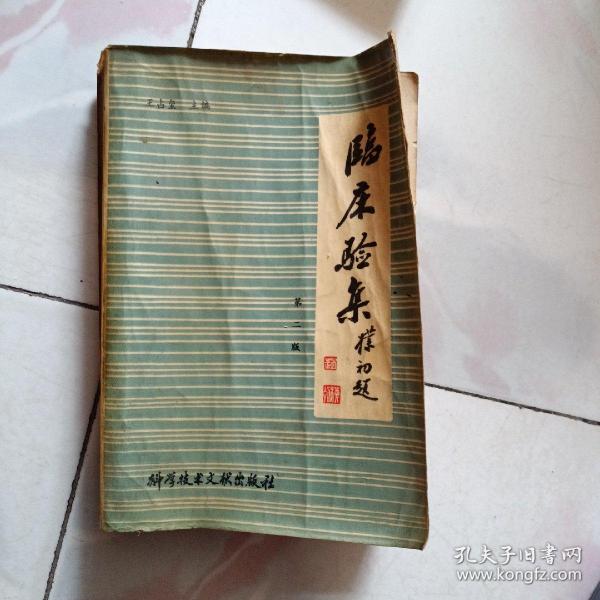 王占玺 主编
临床验集
朴初题
第二版
科学技术文献出版社
孔夫子旧书网
www.kongfz.com